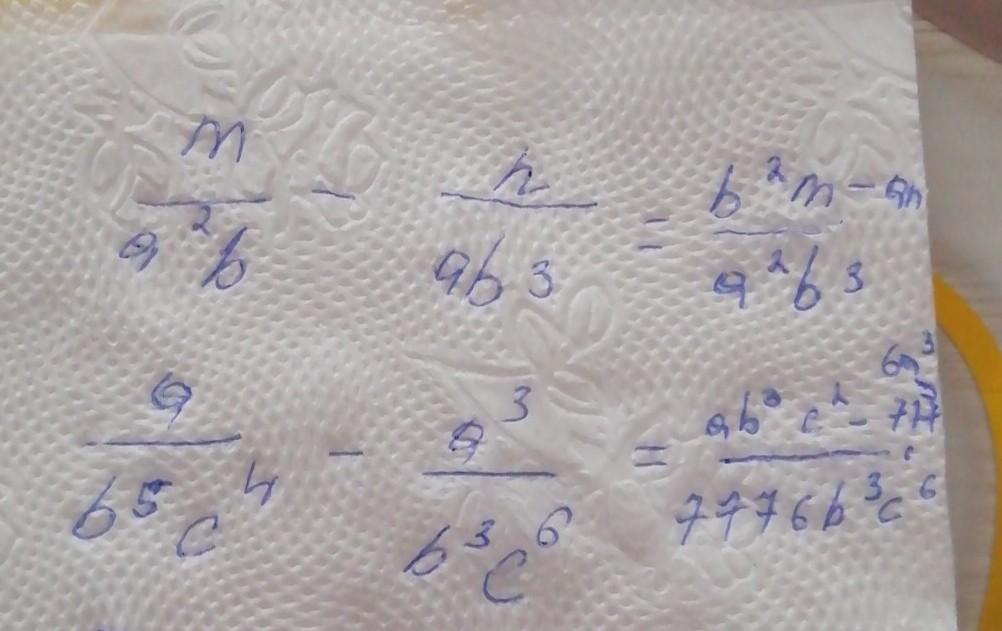 m/a²b - n/ab3 = b²m - an/a²b3
a/b⁵c⁴ - a³/b³c⁶ = ab³c² - 6a³/7776b³c⁶